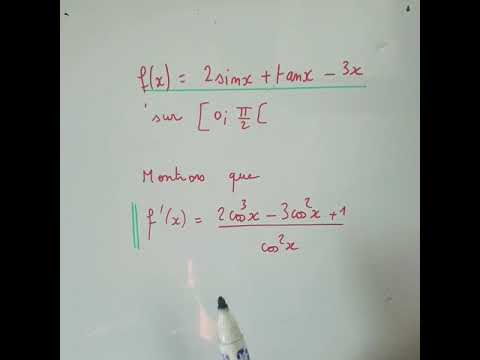 f(x) = 2sinx + tanx - 3x
sur [0; π/2[
Montrons que
f'(x) = (2cos³x - 3cos²x + 1)/cos²x